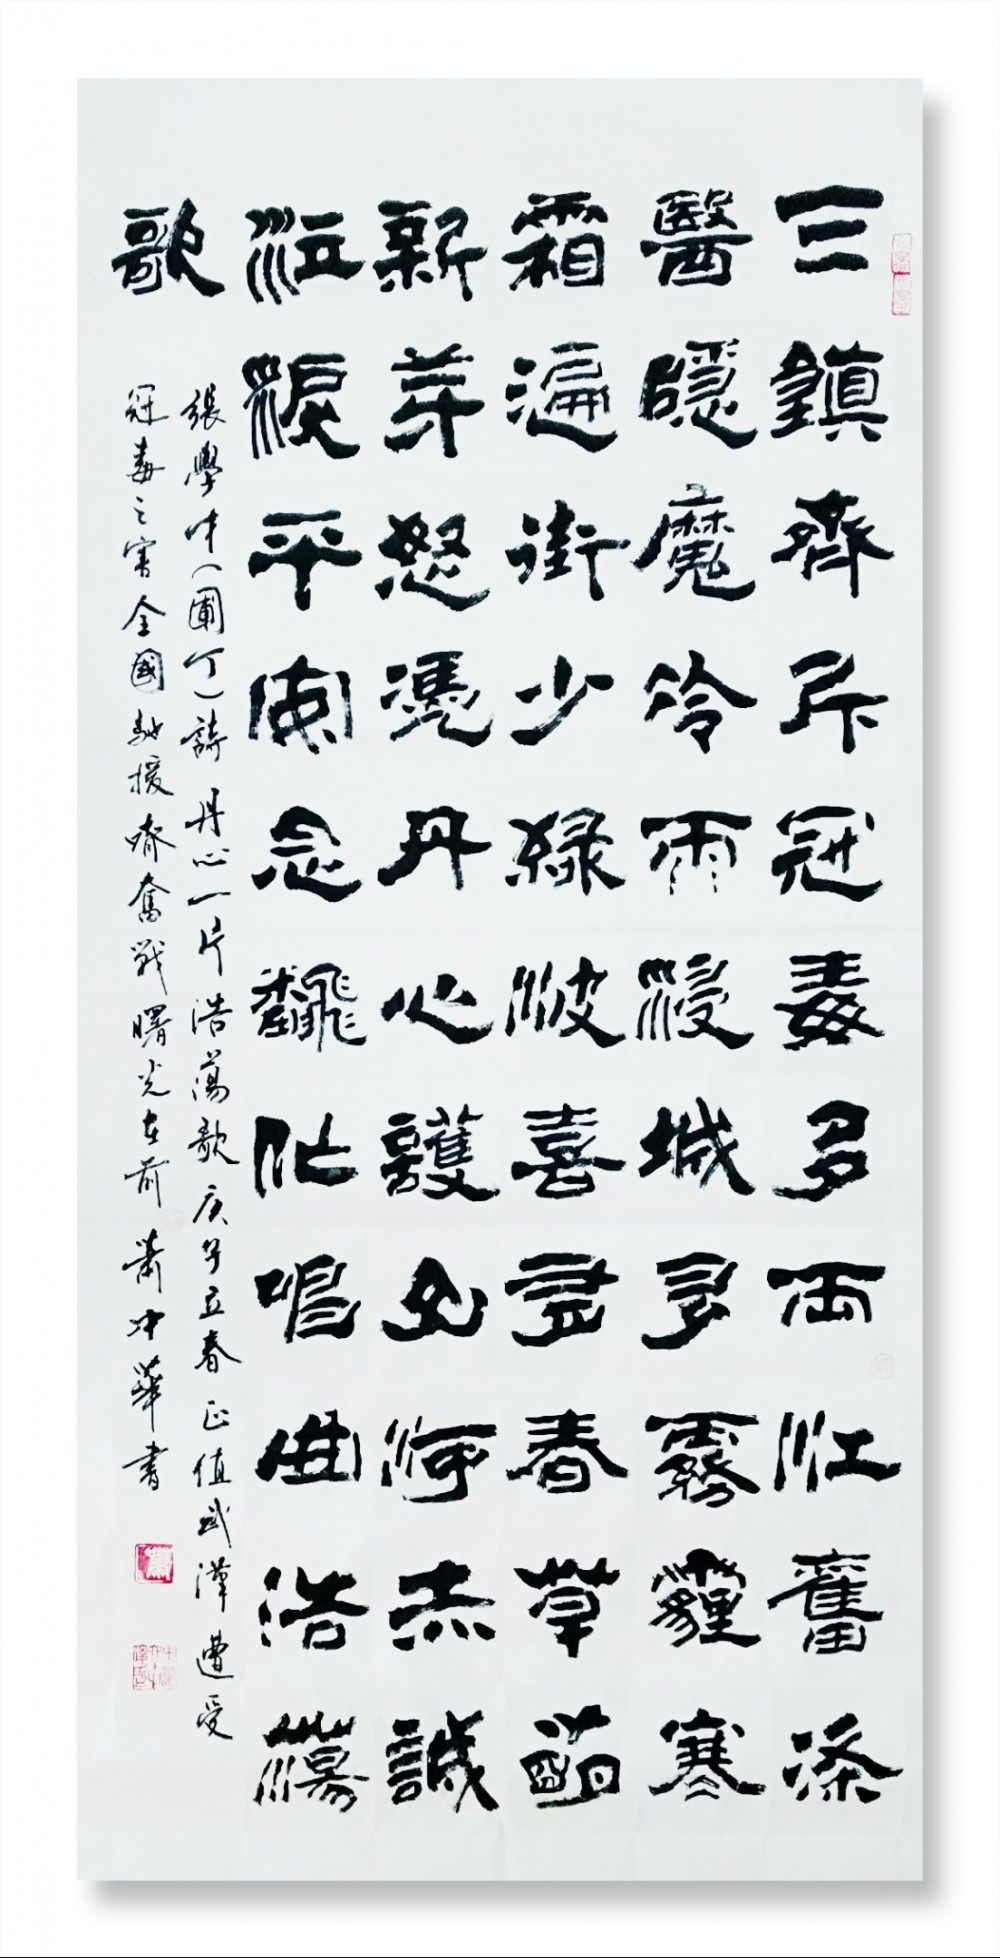 三鎮齊斥冠毒多兩江奮滌
醫隱魔冷雨浸城多霧霾寒
霜遍街少綠波喜尋春草萌
新芽怒憑丹心護山河赤誠
泣淚平安念翻作唱曲浩蕩
歌
張學中（圃丁）詩 丹心一片浩蕩歌 庚子立春正值武漢遭受
冠毒之害全國馳援齊奮戰曙光在前 蕭沖華書